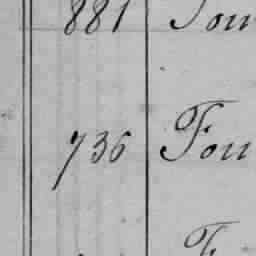 881 Fou
736 Fou